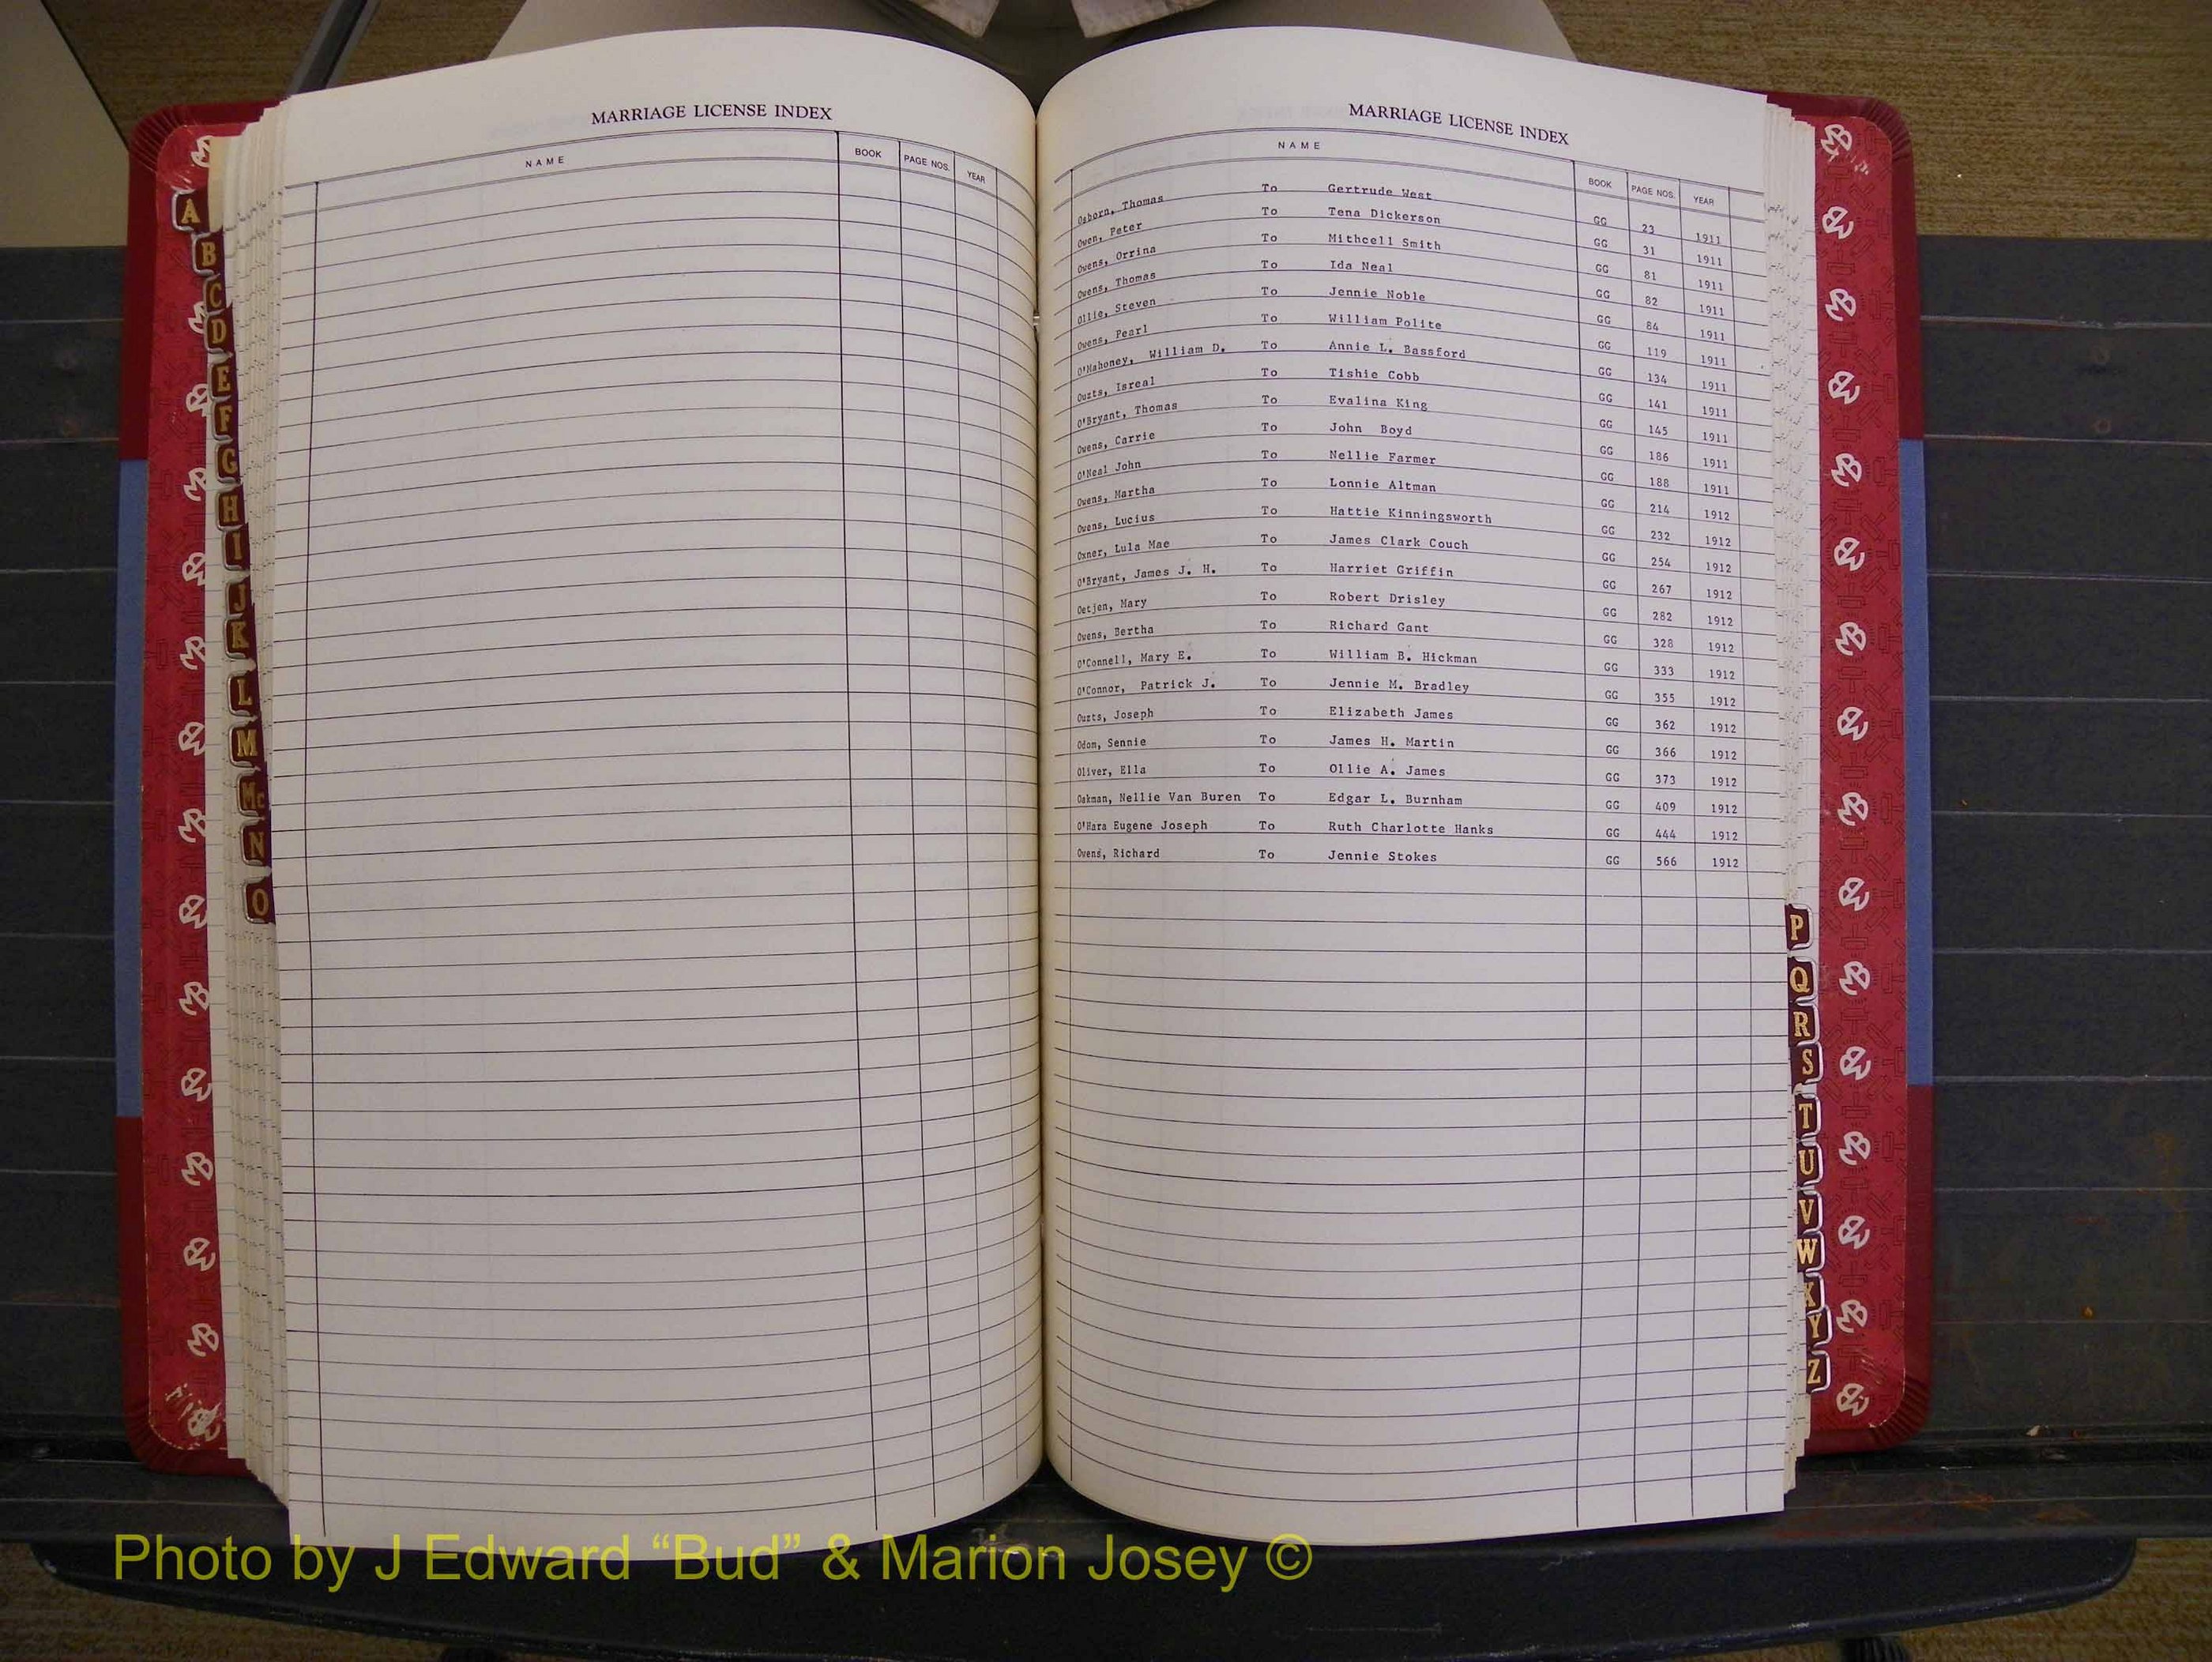 MARRIAGE LICENSE INDEX
NAME BOOK PAGE NOS. YEAR
A
B
C
D
E
F
G
H
I
J
K
L
M
Mc
N
O
MARRIAGE LICENSE INDEX
NAME BOOK PAGE NOS. YEAR
Osborn, Thomas To Gertrude West GG 23 1911
Owen, Peter To Tena Dickerson GG 31 1911
Owens, Orrina To Mithcell Smith GG 81 1911
Owens, Thomas To Ida Neal GG 82 1911
Ollie, Steven To Jennie Noble GG 84 1911
Owens, Pearl To William Polite GG 119 1911
O'Mahoney, William D. To Annie L. Bassford GG 134 1911
Ouzts, Isreal To Tishie Cobb GG 141 1911
O'Bryant, Thomas To Evalina King GG 145 1911
Owens, Carrie To John Boyd GG 186 1911
O'Neal John To Nellie Farmer GG 188 1911
Owens, Martha To Lonnie Altman GG 214 1912
Owens, Lucius To Hattie Kinningsworth GG 232 1912
Oxner, Lula Mae To James Clark Couch GG 254 1912
O'Bryant, James J. H. To Harriet Griffin GG 267 1912
Oetjen, Mary To Robert Drisley GG 282 1912
Owens, Bertha To Richard Gant GG 328 1912
O'Connell, Mary E. To William B. Hickman GG 333 1912
O'Connor, Patrick J. To Jennie M. Bradley GG 355 1912
Ouzts, Joseph To Elizabeth James GG 362 1912
Odom, Sennie To James H. Martin GG 366 1912
Oliver, Ella To Ollie A. James GG 373 1912
Oakman, Nellie Van Buren To Edgar L. Burnham GG 409 1912
O'Hara Eugene Joseph To Ruth Charlotte Hanks GG 444 1912
Owens, Richard To Jennie Stokes GG 566 1912
P
Q
R
S
T
U
V
W
X
Y
Z
Photo by J Edward “Bud” & Marion Josey ©